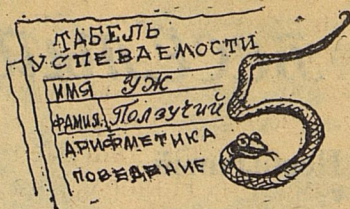 ТАБЕЛЬ
УСПЕВАЕМОСТИ
ИМЯ УЖ
ФАМИЛ. Ползучий
АРИФМЕТИКА 5
ПОВЕДЕНИЕ